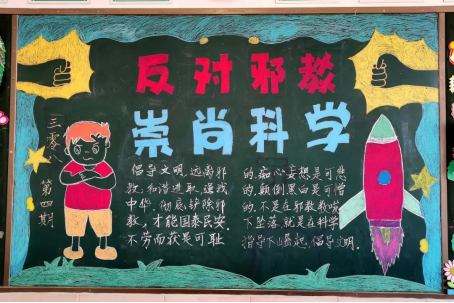 反对邪教
崇尚科学
三零八
第四期
倡导文明,远离邪
教,和谐进取,逐我
中华,彻底铲除邪
教,才能国泰民安.
不劳而获是可耻
的,痴心妄想是可悲
的,颠倒黑白是可憎
的,不是在邪教教唆
下坠落,就是在科学
指导下崛起,倡导文明.